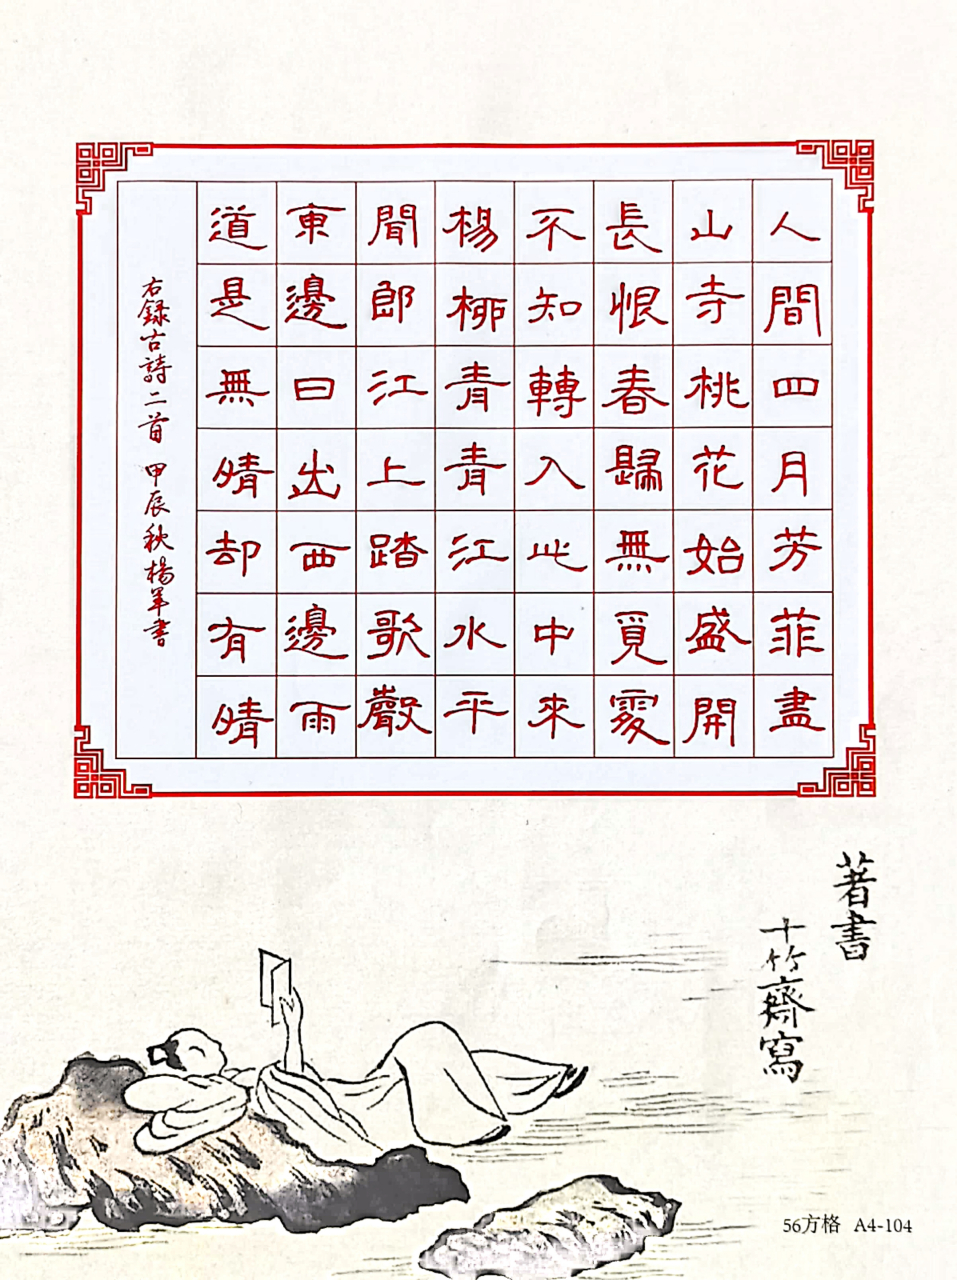 人間四月芳菲盡
山寺桃花始盛開
長恨春歸無覓處
不知轉入此中來
楊柳青青江水平
聞郎江上踏歌聲
東邊日出西邊雨
道是無晴却有晴
右録古詩二首 甲辰秋楊軍書
著書
十竹齋寫
56方格 A4-104